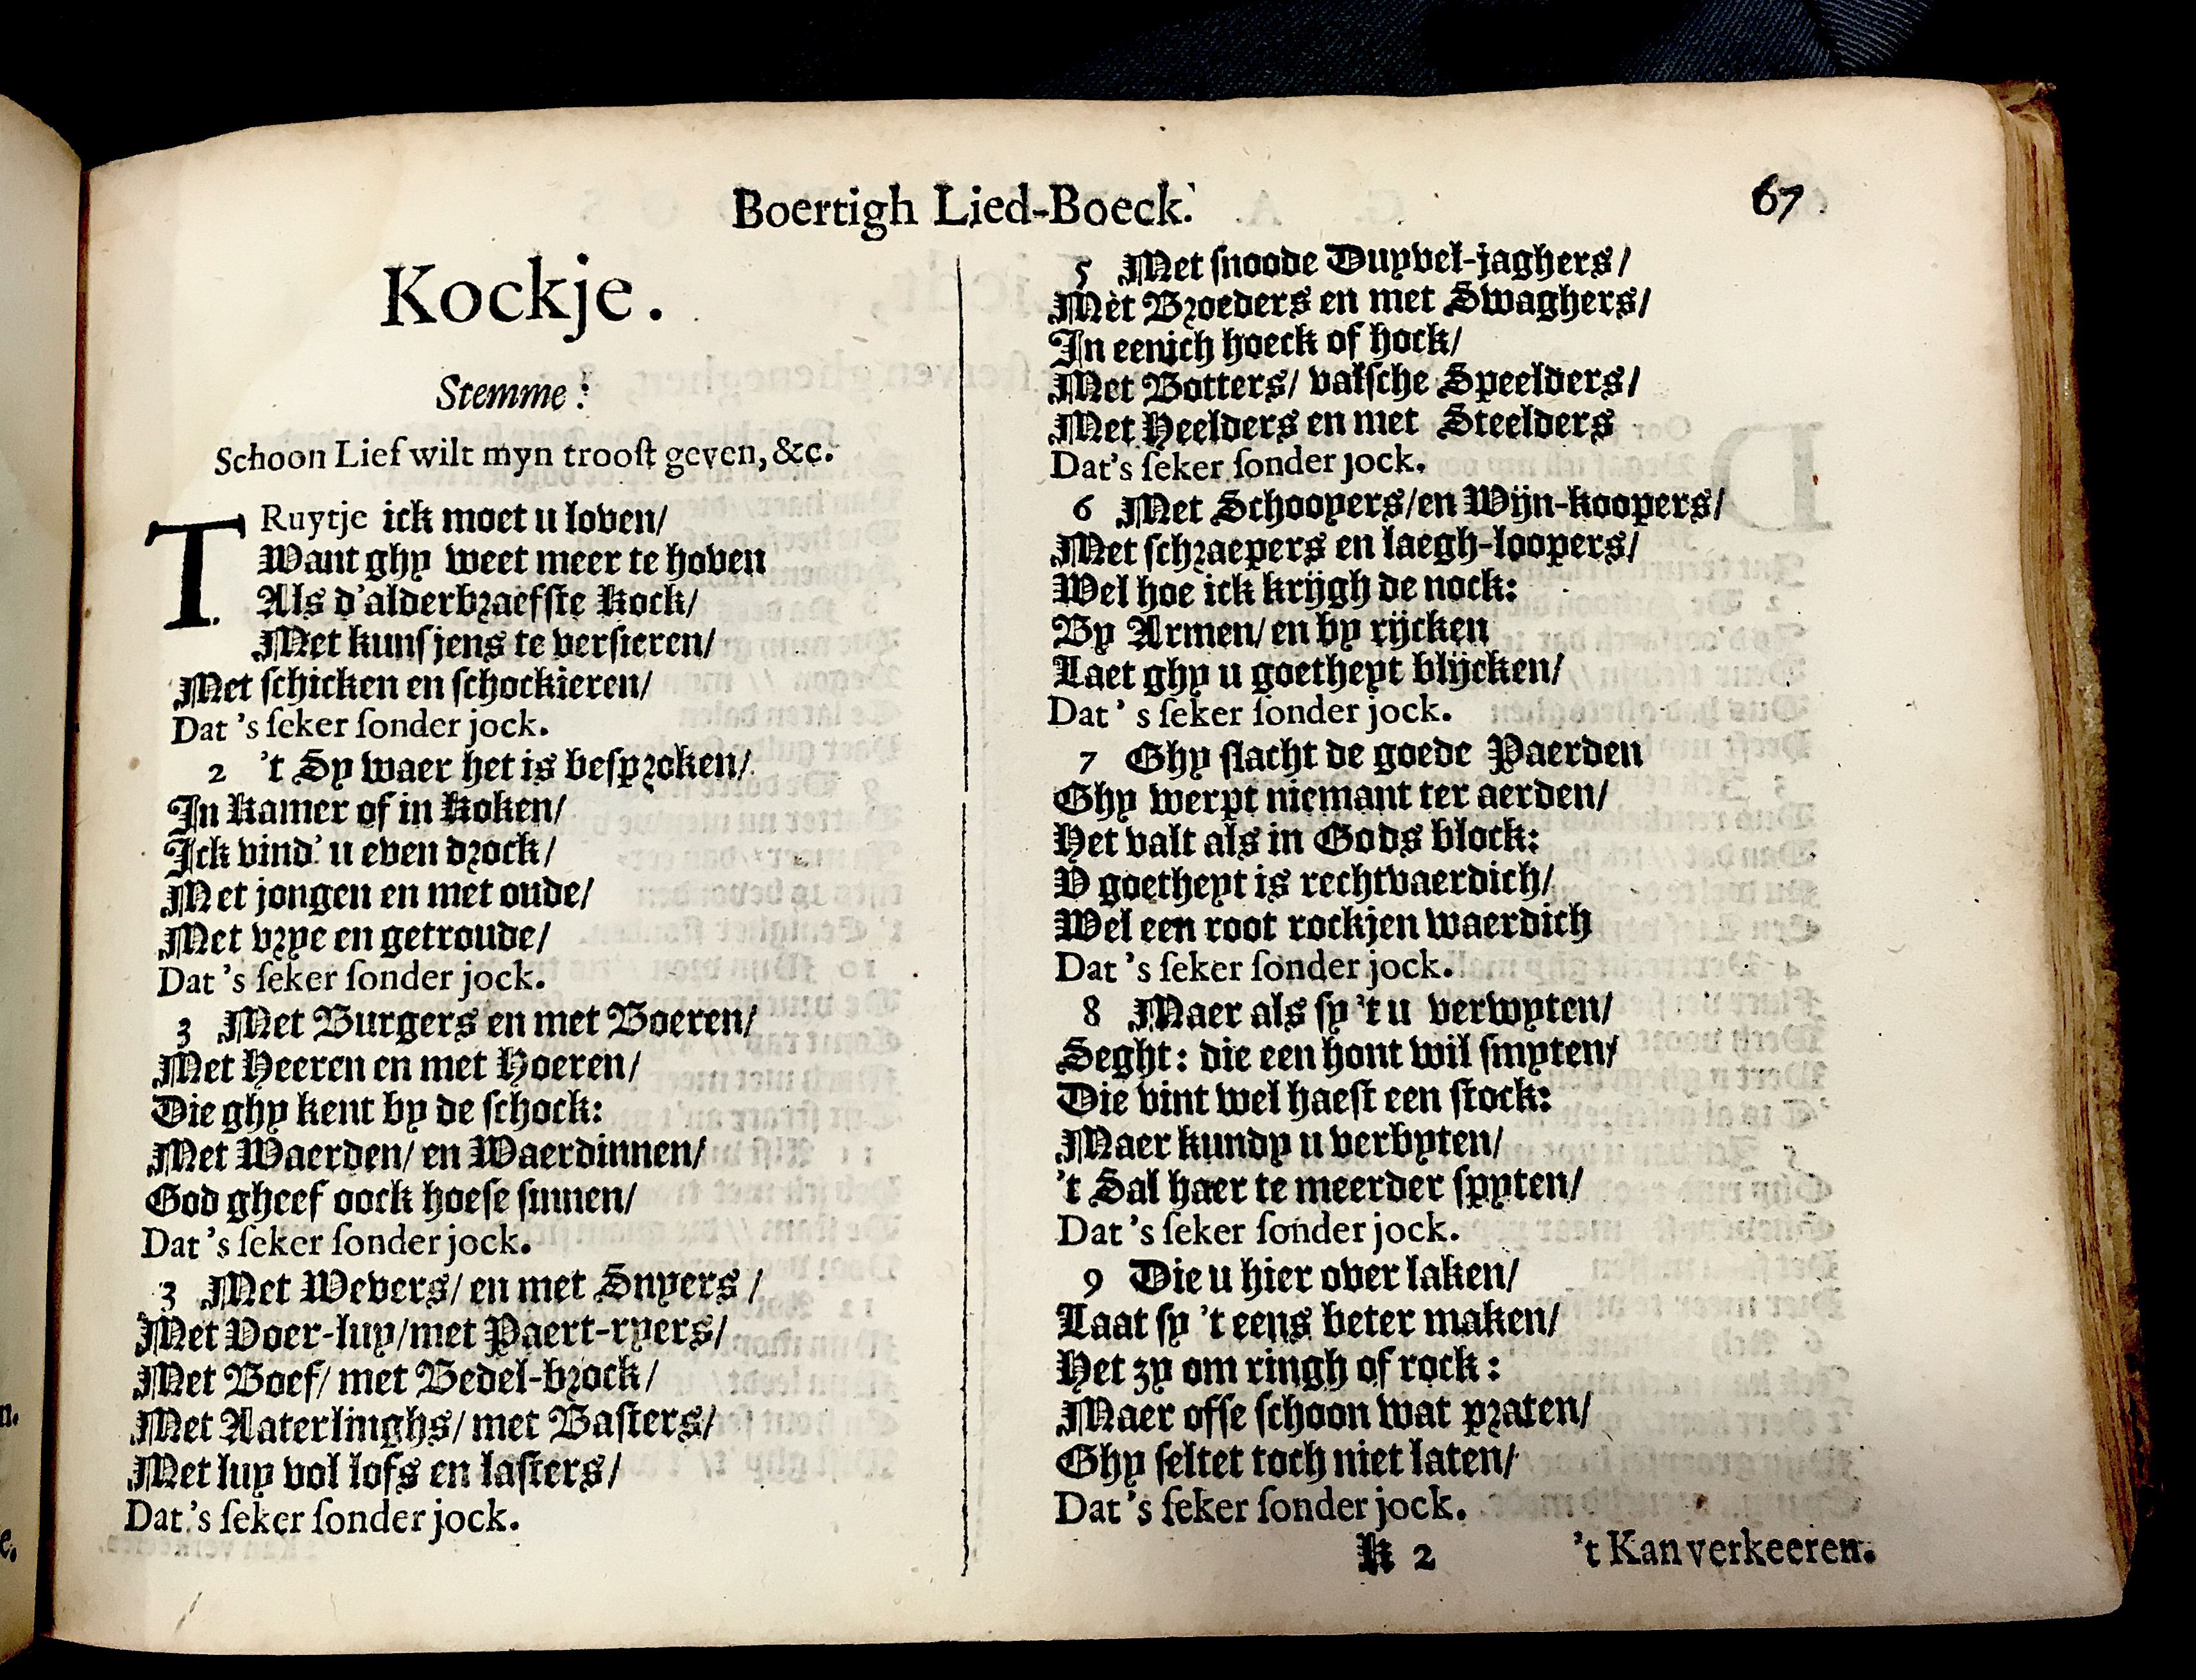 Boertigh Lied-Boeck.
67
Kockje.
Stemme:
Schoon Lief wilt myn trooſt geven, &c.
TRuytje ick moet u loven/
Want ghy weet meer te hoven
Als d'alderbraefſte Kock/
Met kunſjens te verſieren/
Met ſchicken en ſchockieren/
Dat 's ſeker ſonder jock.
2 't Sy waer het is beſproken/
In Kamer of in Koken/
Ick vind' u even drock/
Met jongen en met oude/
Met vrye en getroude/
Dat 's ſeker ſonder jock.
3 Met Burgers en met Boeren/
Met Heeren en met Hoeren/
Die ghy kent by de ſchock:
Met Waerden/ en Waerdinnen/
God gheef oock hoeſe ſinnen/
Dat 's ſeker ſonder jock.
3 Met Wevers/ en met Snyers/
Met Voer-luy/met Paert-ryers/
Met Boef/ met Bedel-brock/
Met Aaterlinghs/ met Baſters/
Met luy vol lofs en laſters/
Dat 's ſeker ſonder jock.
5 Met ſnoode Duyvel-jaghers/
Met Broeders en met Swaghers/
In eenich hoeck of hock/
Met Botters/ valſche Speelders/
Met Heelders en met Steelders
Dat's ſeker ſonder jock.
6 Met Schooyers/en Wijn-koopers/
Met ſchraepers en laegh-loopers/
Wel hoe ick krijgh de nock:
By Armen/ en by rijcken
Laet ghy u goetheyt blijcken/
Dat 's ſeker ſonder jock.
7 Ghy ſlacht de goede Paerden
Ghy werpt niemant ter aerden/
Het valt als in Gods block:
V goetheyt is rechtvaerdich/
Wel een root rockjen waerdich
Dat 's ſeker ſonder jock.
8 Maer als ſy 't u verwyten/
Seght: die een hont wil ſmyten/
Die vint wel haeſt een ſtock:
Maer kundy u verbyten/
't Sal haer te meerder ſpyten/
Dat 's ſeker ſonder jock.
9 Die u hier over laken/
Laat ſy 't eens beter maken/
Het zy om ringh of rock:
Maer offe ſchoon wat praten/
Ghy ſeltet toch niet laten/
Dat 's ſeker ſonder jock.
K 2
't Kan verkeeren.